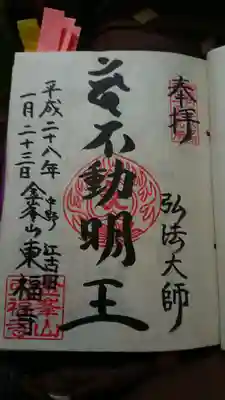 奉拝
弘法大師
不動明王
中野 江古田
金峯山 東福寺
平成二十八年
一月二十三日